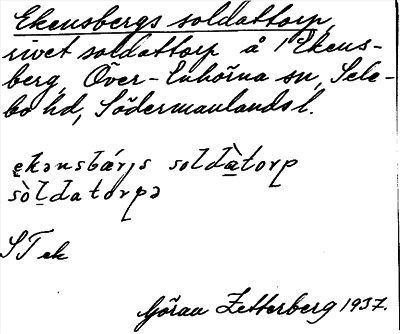 Ekensbergs soldattorp,
rivet soldattorp å 1 Ekens-
berg, Över-Enhörna sn, Sele-
bo hd, Södermanlands l.
ekənsbárjs soldàtorp
sòldatorpə
ST ek
Göran Zetterberg 1937.